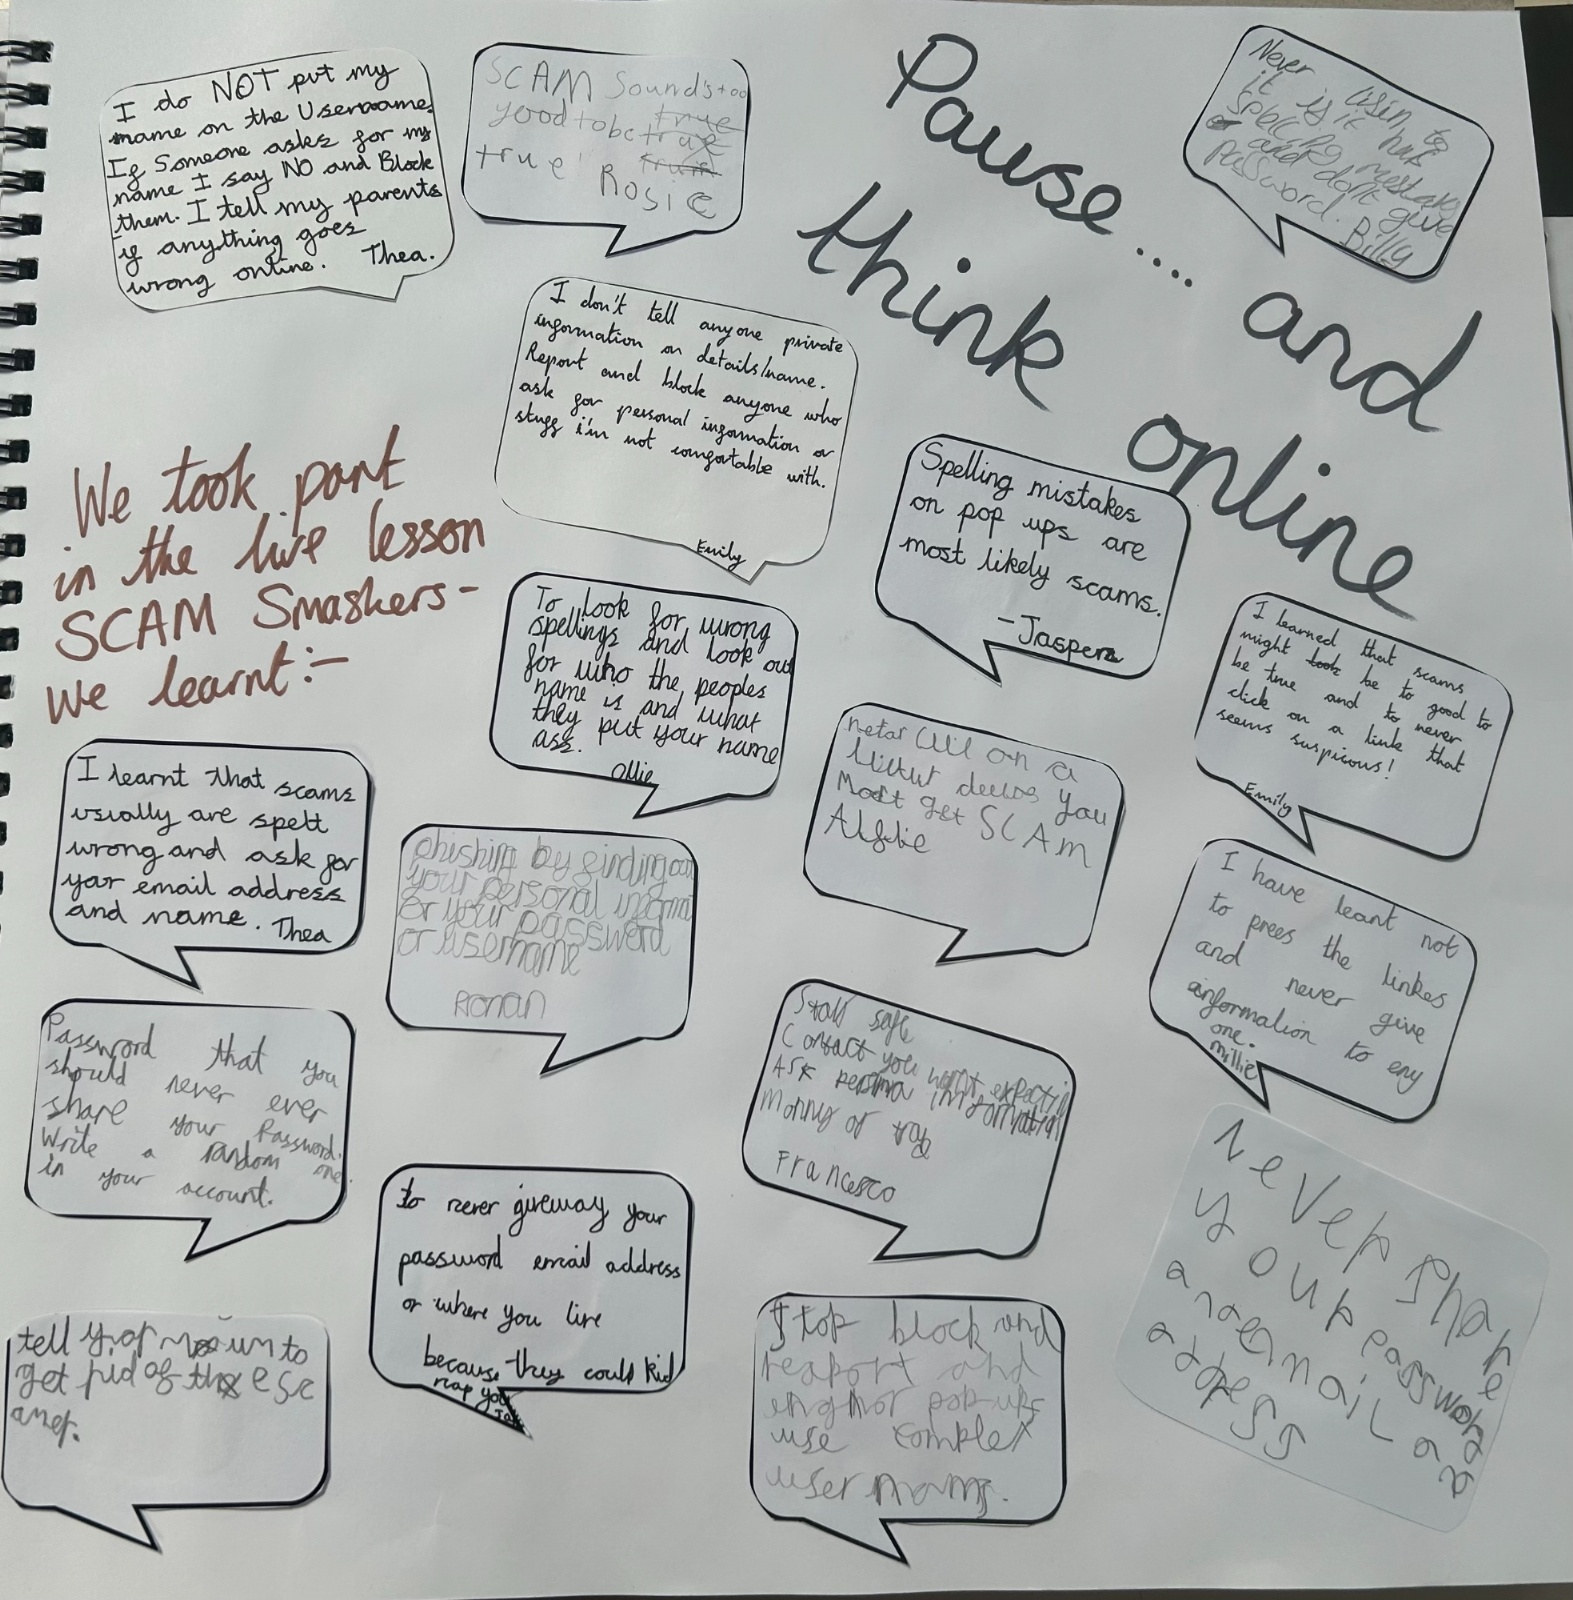 Pause.... and
think online
We took part
in the live lesson
SCAM Smashers-
we learnt:-
I do NOT put my
name on the Username.
If Someone asks for my
name I say NO and Block
them. I tell my parents
if anything goes
wrong online. Thea.
SCAM Sounds too
good to be true
true
true' Rosie
Never
it is if it has
spelling mistakes
and don't give
password. Billy
I don't tell anyone private
information or details/name.
Report and block anyone who
ask for personal information or
stuff i'm not comfortable with.
Emily
Spelling mistakes
on pop ups are
most likely scams.
-Jasper
To look for wrong
spellings and look out
for who the peoples
name is and what
they put your name
ass.
Ollie
I learned that scams
might look be to good to
be true and to never
click on a link that
seems suspicous!
Emily
I learnt that scams
usually are spelt
wrong and ask for
your email address
and name. Thea
on a
you
Most get SCAM
Alfie
phishing by finding out
your personal
or your password
or username
Ronan
I have leant not
to prees the linkes
and never give
information to eny
one.
millie
Password that you
should never ever
share your Password.
Write a random one
in your account.
safe
Contact you
ASK information
monny or
Francesco
to never giveway your
password email address
or where you live
because they could kid
nap you
Never share
your password
and email ad
adress
tell
get rid of these sc
amer.
Stop block and
reaport and
pop-ups
use complex
user